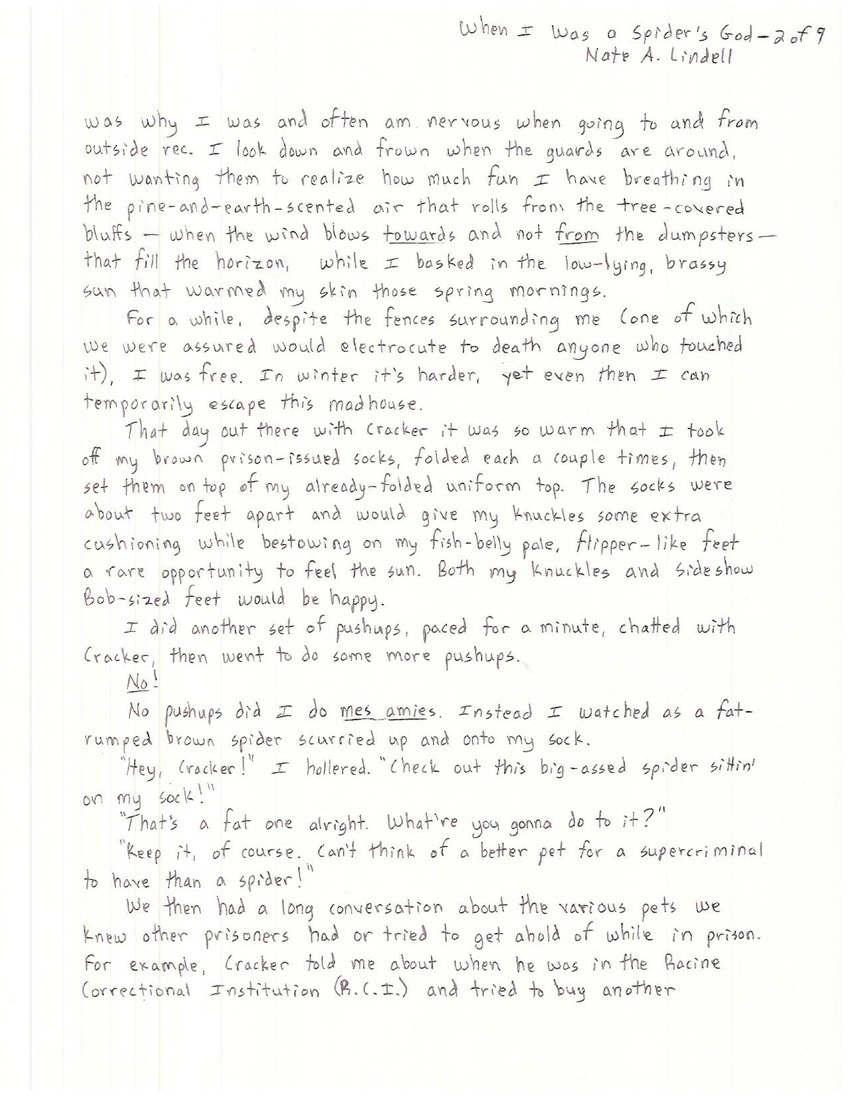 When I Was a Spider's God – 2 of 9
Nate A. Lindell
was why I was and often am nervous when going to and from
outside rec. I look down and frown when the guards are around,
not wanting them to realize how much fun I have breathing in
the pine-and-earth-scented air that rolls from the tree-covered
bluffs – when the wind blows towards and not from the dumpsters –
that fill the horizon, while I basked in the low-lying, brassy
sun that warmed my skin those spring mornings.
For a while, despite the fences surrounding me (one of which
we were assured would electrocute to death anyone who touched
it), I was free. In winter it's harder, yet even then I can
temporarily escape this madhouse.
That day out there with Cracker it was so warm that I took
off my brown prison-issued socks, folded each a couple times, then
set them on top of my already-folded uniform top. The socks were
about two feet apart and would give my knuckles some extra
cushioning while bestowing on my fish-belly pale, flipper-like feet
a rare opportunity to feel the sun. Both my knuckles and Sideshow
Bob-sized feet would be happy.
I did another set of pushups, paced for a minute, chatted with
Cracker, then went to do some more pushups.
No!
No pushups did I do mes amies. Instead I watched as a fat-
rumped brown spider scurried up and onto my sock.
"Hey, Cracker!" I hollered. "Check out this big-assed spider sittin'
on my sock!"
"That's a fat one alright. What're you gonna do to it?"
"Keep it, of course. Can't think of a better pet for a supercriminal
to have than a spider!"
We then had a long conversation about the various pets we
knew other prisoners had or tried to get ahold of while in prison.
For example, Cracker told me about when he was in the Racine
Correctional Institution (R.C.I.) and tried to buy another